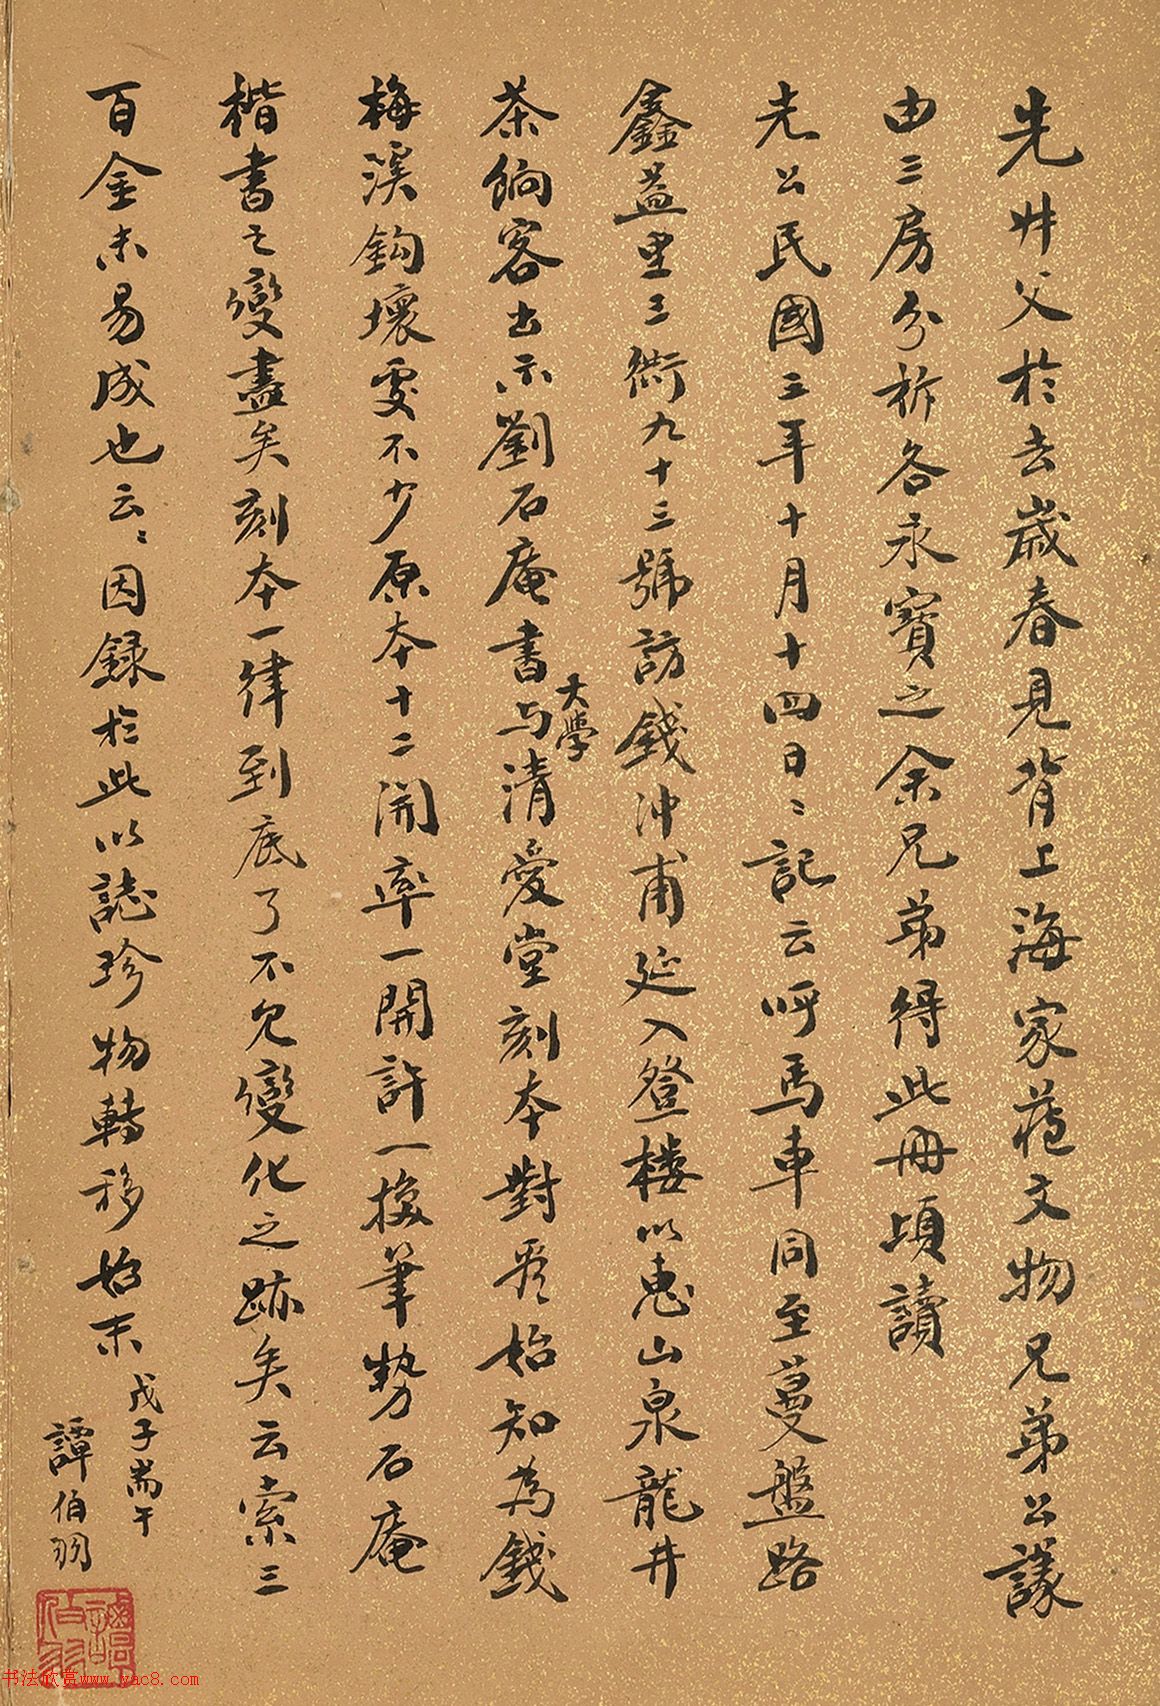 先叔父於去歲春見背上海家蔵文物兄弟公議
由三房分析各永寶之余兄弟得此冊頃讀
先公民國三年十月十四日〻記云呼馬車同至蔓盤路
鑫益里三衖九十三號訪錢沖甫延入登楼以惠山泉龍井
茶餉客出示劉石庵書大學与清愛堂刻本對看始知為錢
梅溪鈎壞處不少原本十二開率一開許一換筆勢石庵
楷書之變盡矣刻本一律到底了不見變化之跡矣云索三
百金未易成也云〻因録於此以誌珍物轉移始末
戊子耑午
譚伯羽
譚伯羽
书法欣赏www.yac8.com